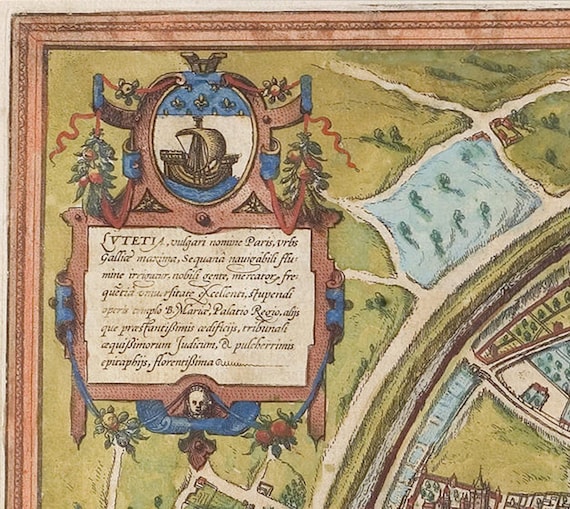 LVTETIA, vulgari nomine Paris, vrbs
Galliæ maxima, Sequana nauigabili flu
mine irrigatur, nobili gente, mercator, fre
quētia vniuersitate Excellenti, stupendi
operis templo B. Mariæ, Palatio Regio, alijs
que præstantissimis ædificijs, tribunali
æquissimorum Judicum, & pulcherrimis
epitaphijs, florentissima